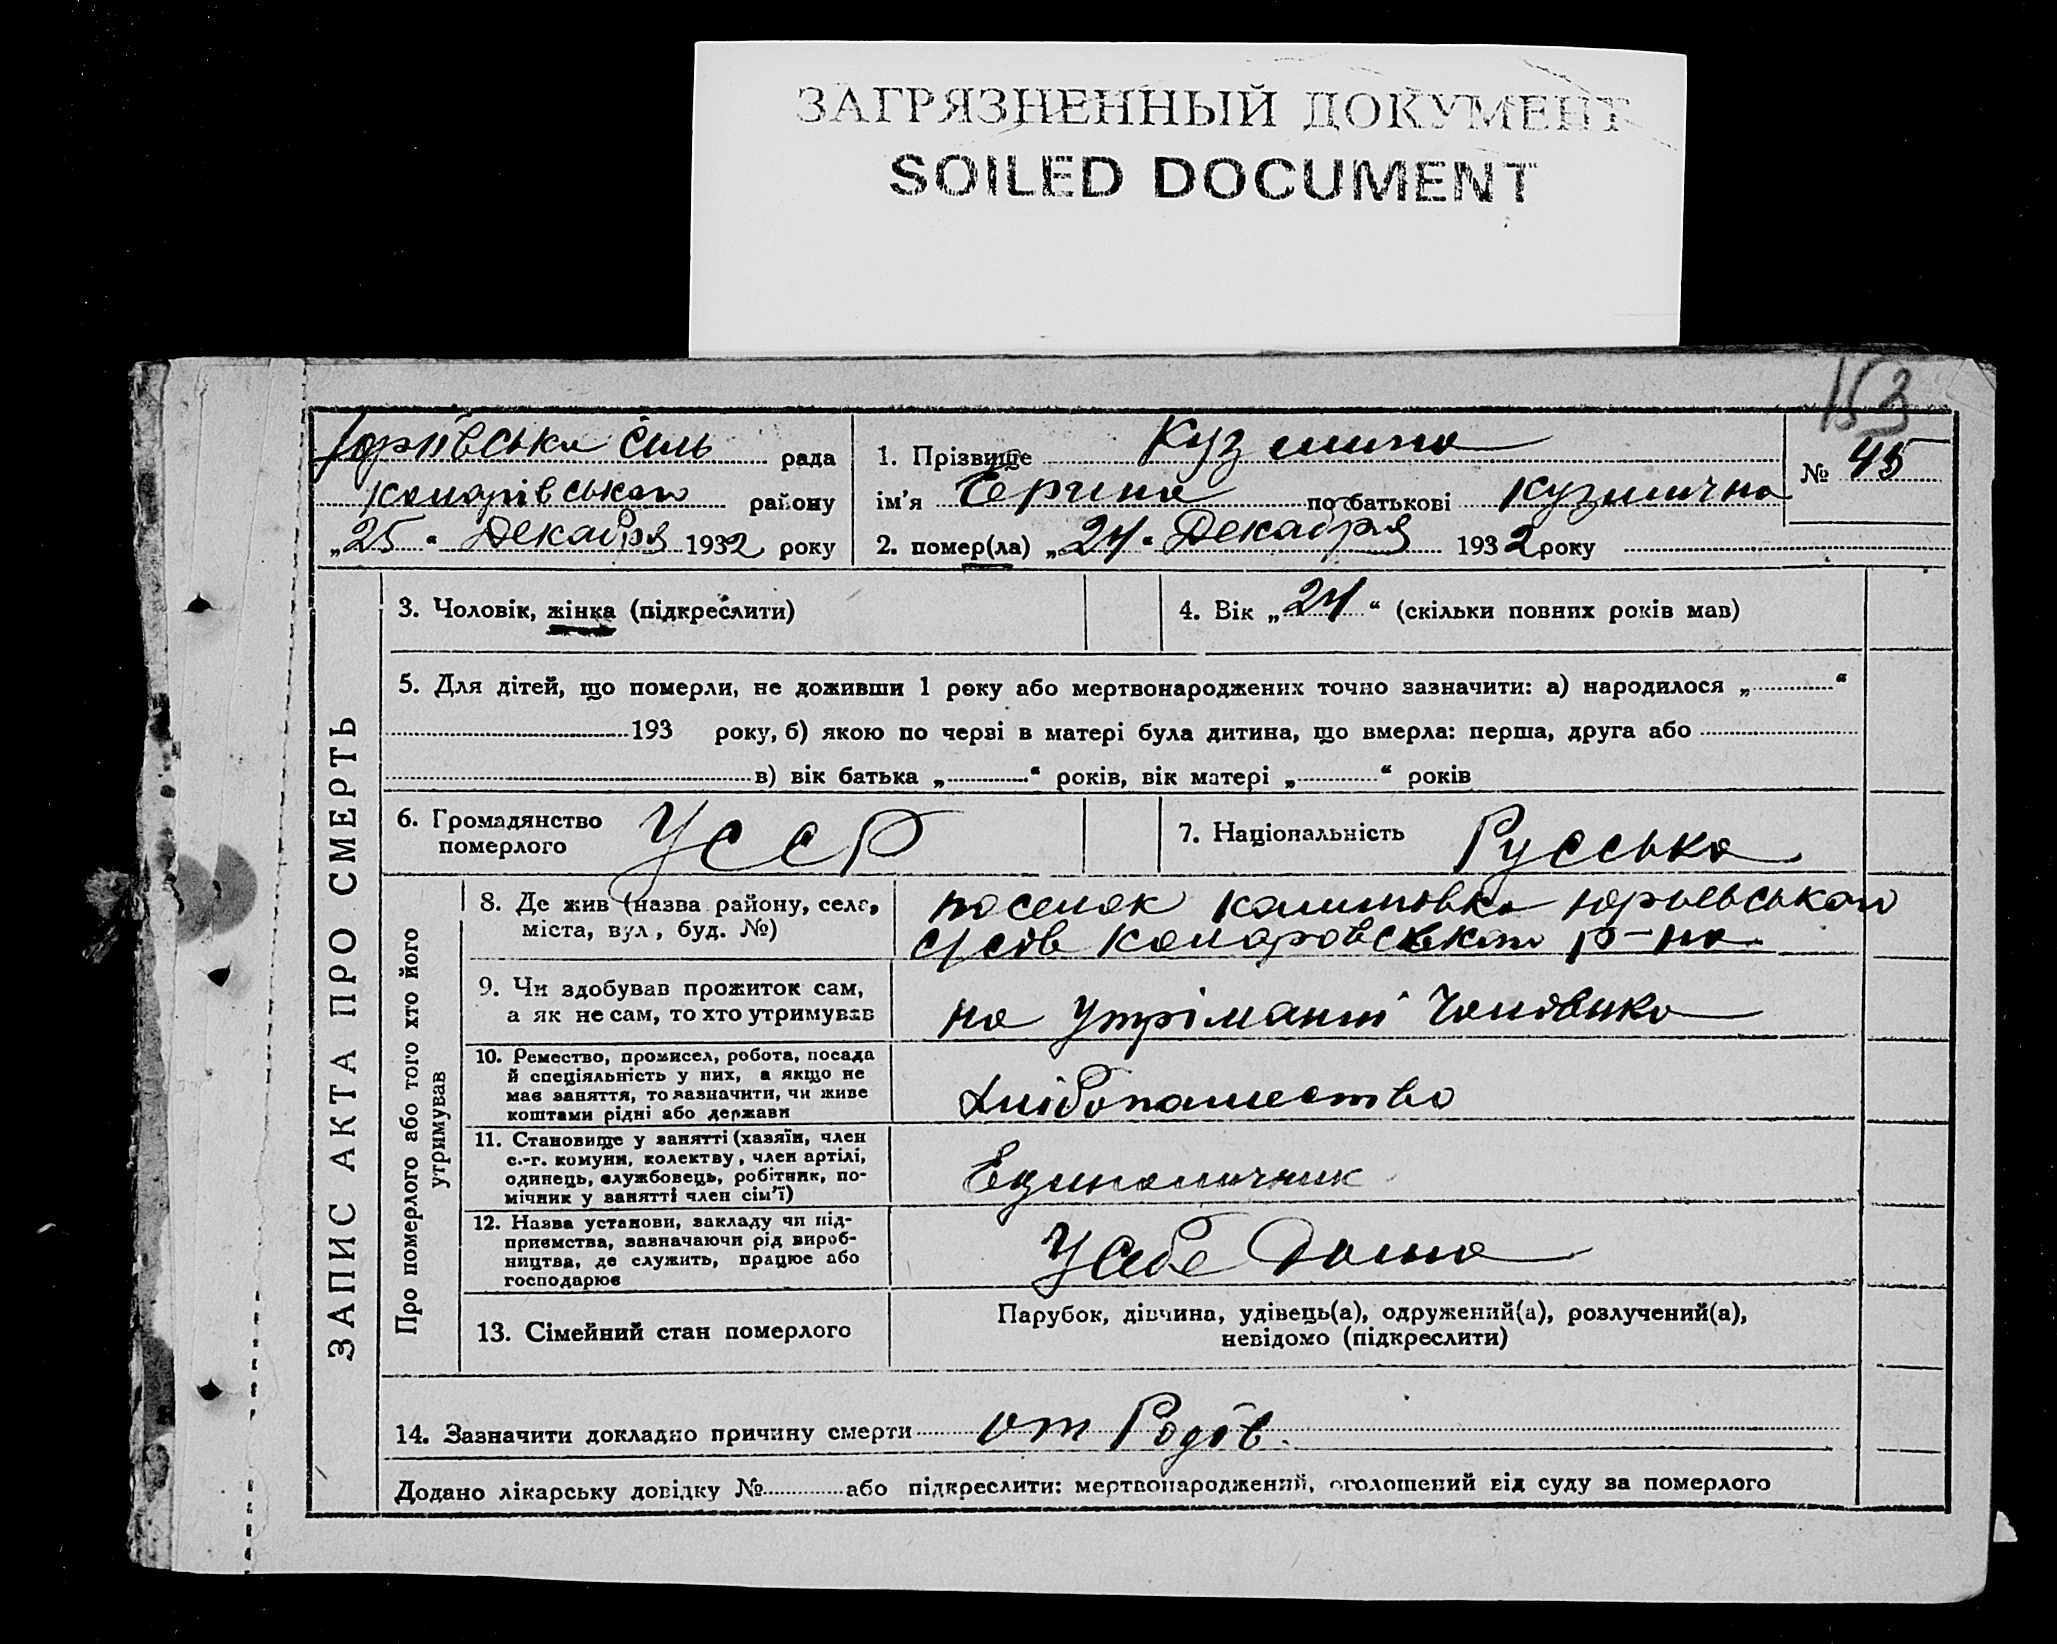 ЗАГРЯЗНЕННЫЙ ДОКУМЕНТ
SOILED DOCUMENT
153
Юріївська сіль рада
Комарівськаго району
„25“ Декабря 1932 року
1. Прізвище Кузмина
ім’я по батькові Кузминична
2. помер(ла) „24“ Декабря 1932 року
№ 45
ЗАПИС АКТА ПРО СМЕРТЬ
3. Чоловік, жінка (підкреслити)
4. Вік „24“ (скільки повних років мав)
5. Для дітей, що померли, не доживши 1 року або мертвонароджених точно зазначити: а) народилося „ “
193 року, б) якою по черзі в матері була дитина, що вмерла: перша, друга або
в) вік батька „ “ років, вік матері „ “ років
6. Громадянство
померлого
УССР
7. Національність Русська
Про померлого або того хто його
утримував
8. Де жив (назва району, село,
міста, вул., буд. №)
поселок Юрьевськаго
с/сов Комаровськаго р-на
9. Чи здобував прожиток сам,
а як не сам, то хто утримував
на утріманні Чоловика
10. Ремество, промисел, робота, посада
й спеціяльність у них, а якщо не
має заняття, то зазначити, чи живе
коштами рідні або держави
Хлібопашество
11. Становище у занятті (хазяїн, член
с.-г. комуни, колектву, член артілі,
одинець, службовець, робітник, по-
мічник у занятті член сім’ї)
Единоличник
12. Назва установи, закладу чи під-
приємства, зазначаючи рід вироб-
ництва, де служить, працює або
господарює
У себе Дома
13. Сімейний стан померлого
Парубок, дівчина, удівець(а), одружений(а), розлучений(а),
невідомо (підкреслити)
14. Зазначити докладно причину смерти от Родів.
Додано лікарську довідку № або підкреслити: мертвонароджений, оголошений від суду за померлого